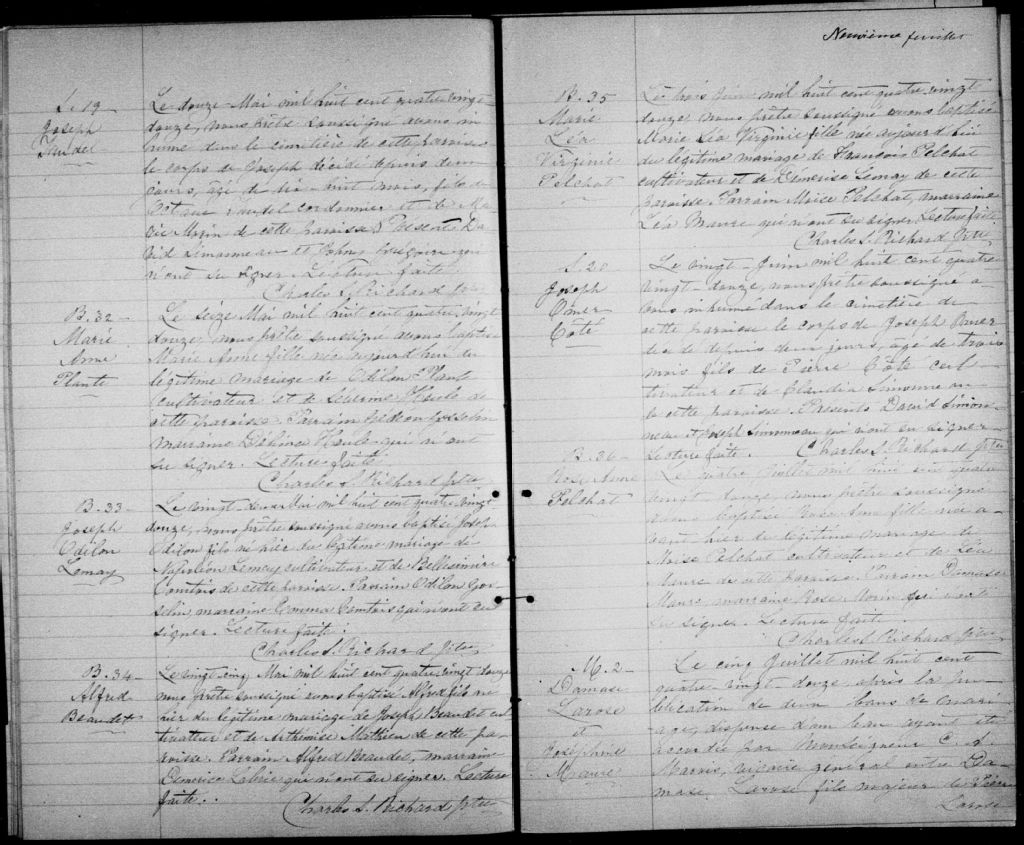 S. 19
Joseph
Le douze Mai mil huit cent quatre vingt
douze, nous prêtre soussigné avons in
humé dans le cimetière de cette paroisse
le corps de Joseph décédé depuis deux
jours, agé de huit mois, fils de
cordonnier et de Ma
rie Morin de cette paroisse. Présents Da
vid Simonneau et John qui
n'ont su signer. Lecture faite
Charles S. Richard Ptre
B. 32
Marie
Anne
Plante
Le seize Mai mil huit cent quatre vingt
douze, nous prêtre soussigné avons baptisé
Marie Anne fille née aujourd'hui du
légitime mariage de Odilon Plante
cultivateur et de Houle de
cette paroisse. Parrain Gédéon Gosselin
marraine Houle qui n'ont
su signer. Lecture faite
Charles S. Richard ptre
B. 33
Joseph
Odilon
Lemay
Le vingt-deux Mai mil huit cent quatre vingt
douze, nous prêtre soussigné avons baptisé Joseph
Odilon fils né hier du légitime mariage de
Napoléon Lemay cultivateur et de
Comtois de cette paroisse. Parrain Odilon Gos
selin, marraine Emma Comtois qui n'ont su
signer. Lecture faite.
Charles S. Richard Ptre
B. 34
Alfred
Beaudet
Le vingt cinq Mai mil huit cent quatre vingt douze
nous prêtre soussigné avons baptisé Alfred fils né
hier du légitime mariage de Joseph Beaudet cul
tivateur et de Arthémise Mathieu de cette pa
roisse. Parrain Alfred Beaudet, marraine
qui n'ont su signer. Lecture
faite.
Charles S. Richard ptre
Neuvième feuillet
B. 35
Marie
Léa
Virginie
Pelchat
Le trois Juin mil huit cent quatre vingt
douze nous prêtre soussigné avons baptisé
Marie Léa Virginie fille née aujourd'hui
du légitime mariage de François Pelchat
cultivateur et de Démerise Lemay de cette
paroisse. Parrain Moise Pelchat, marraine
Léa Maure qui n'ont su signer. Lecture faite
Charles S. Richard Ptre
S. 20
Joseph
Omer
Côté
Le vingt Juin mil huit cent quatre
vingt-douze, nous prêtre soussigné a-
vons inhumé dans le cimetière de
cette paroisse le corps de Joseph Omer
décédé depuis deux jours, agé de trois
mois fils de Pierre Côté cul-
tivateur et de Claudia Simonneau
de cette paroisse. Présents David Simon-
neau et Joseph Simonneau qui n'ont su signer-
Lecture faite. Charles S. Richard ptre
B. 36
Rose Anna
Pelchat
Le quatre Juillet mil huit cent quatre
vingt douze, nous prêtre soussigné
avons baptisé Rose Anna fille née a-
vant hier du légitime mariage de
Moise Pelchat cultivateur et de Léa
Maure de cette paroisse. Parrain Damase
Maure, marraine Rose Morin qui n'ont
su signer. Lecture faite.
Charles S. Richard Ptre
M. 2
Damase
Larose
et
Joséphine
Maure
Le cinq Juillet mil huit cent
quatre-vingt-douze après la pu
blication de deux bans de mari
age, dispense d'un ban ayant été
accordée par Monseigneur C. A
Marois, vicaire général entre Da-
mase Larose fils majeur de Pierre
Larose